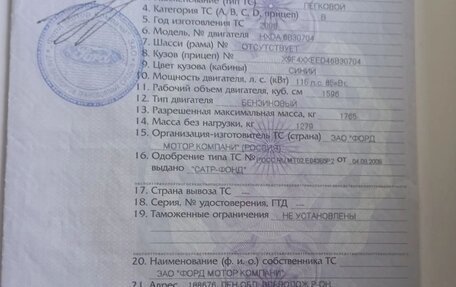 (тип ТС) ЛЕГКОВОЙ
4. Категория ТС (А, В, С, D, прицеп) В
5. Год изготовления ТС
6. Модель, № двигателя HXDA 8B30704
7. Шасси (рама) № ОТСУТСТВУЕТ
8. Кузов (прицеп) №
9. Цвет кузова (кабины) СИНИЙ
10. Мощность двигателя, л. с. (кВт) 116 л.с. 85кВт
11. Рабочий объем двигателя, куб. см 1596
12. Тип двигателя БЕНЗИНОВЫЙ
13. Разрешенная максимальная масса, кг 1765
14. Масса без нагрузки, кг 1279
15. Организация-изготовитель ТС (страна) ЗАО "ФОРД
МОТОР КОМПАНИ" (РОССИЯ)
16. Одобрение типа ТС № от 04.09.2008
выдано "САТР-ФОНД"
17. Страна вывоза ТС ---
18. Серия, № удостоверения, ГТД ---
19. Таможенные ограничения НЕ УСТАНОВЛЕНЫ
20. Наименование (ф. и. о.) собственника ТС
ЗАО "ФОРД МОТОР КОМПАНИ"
21. Адрес